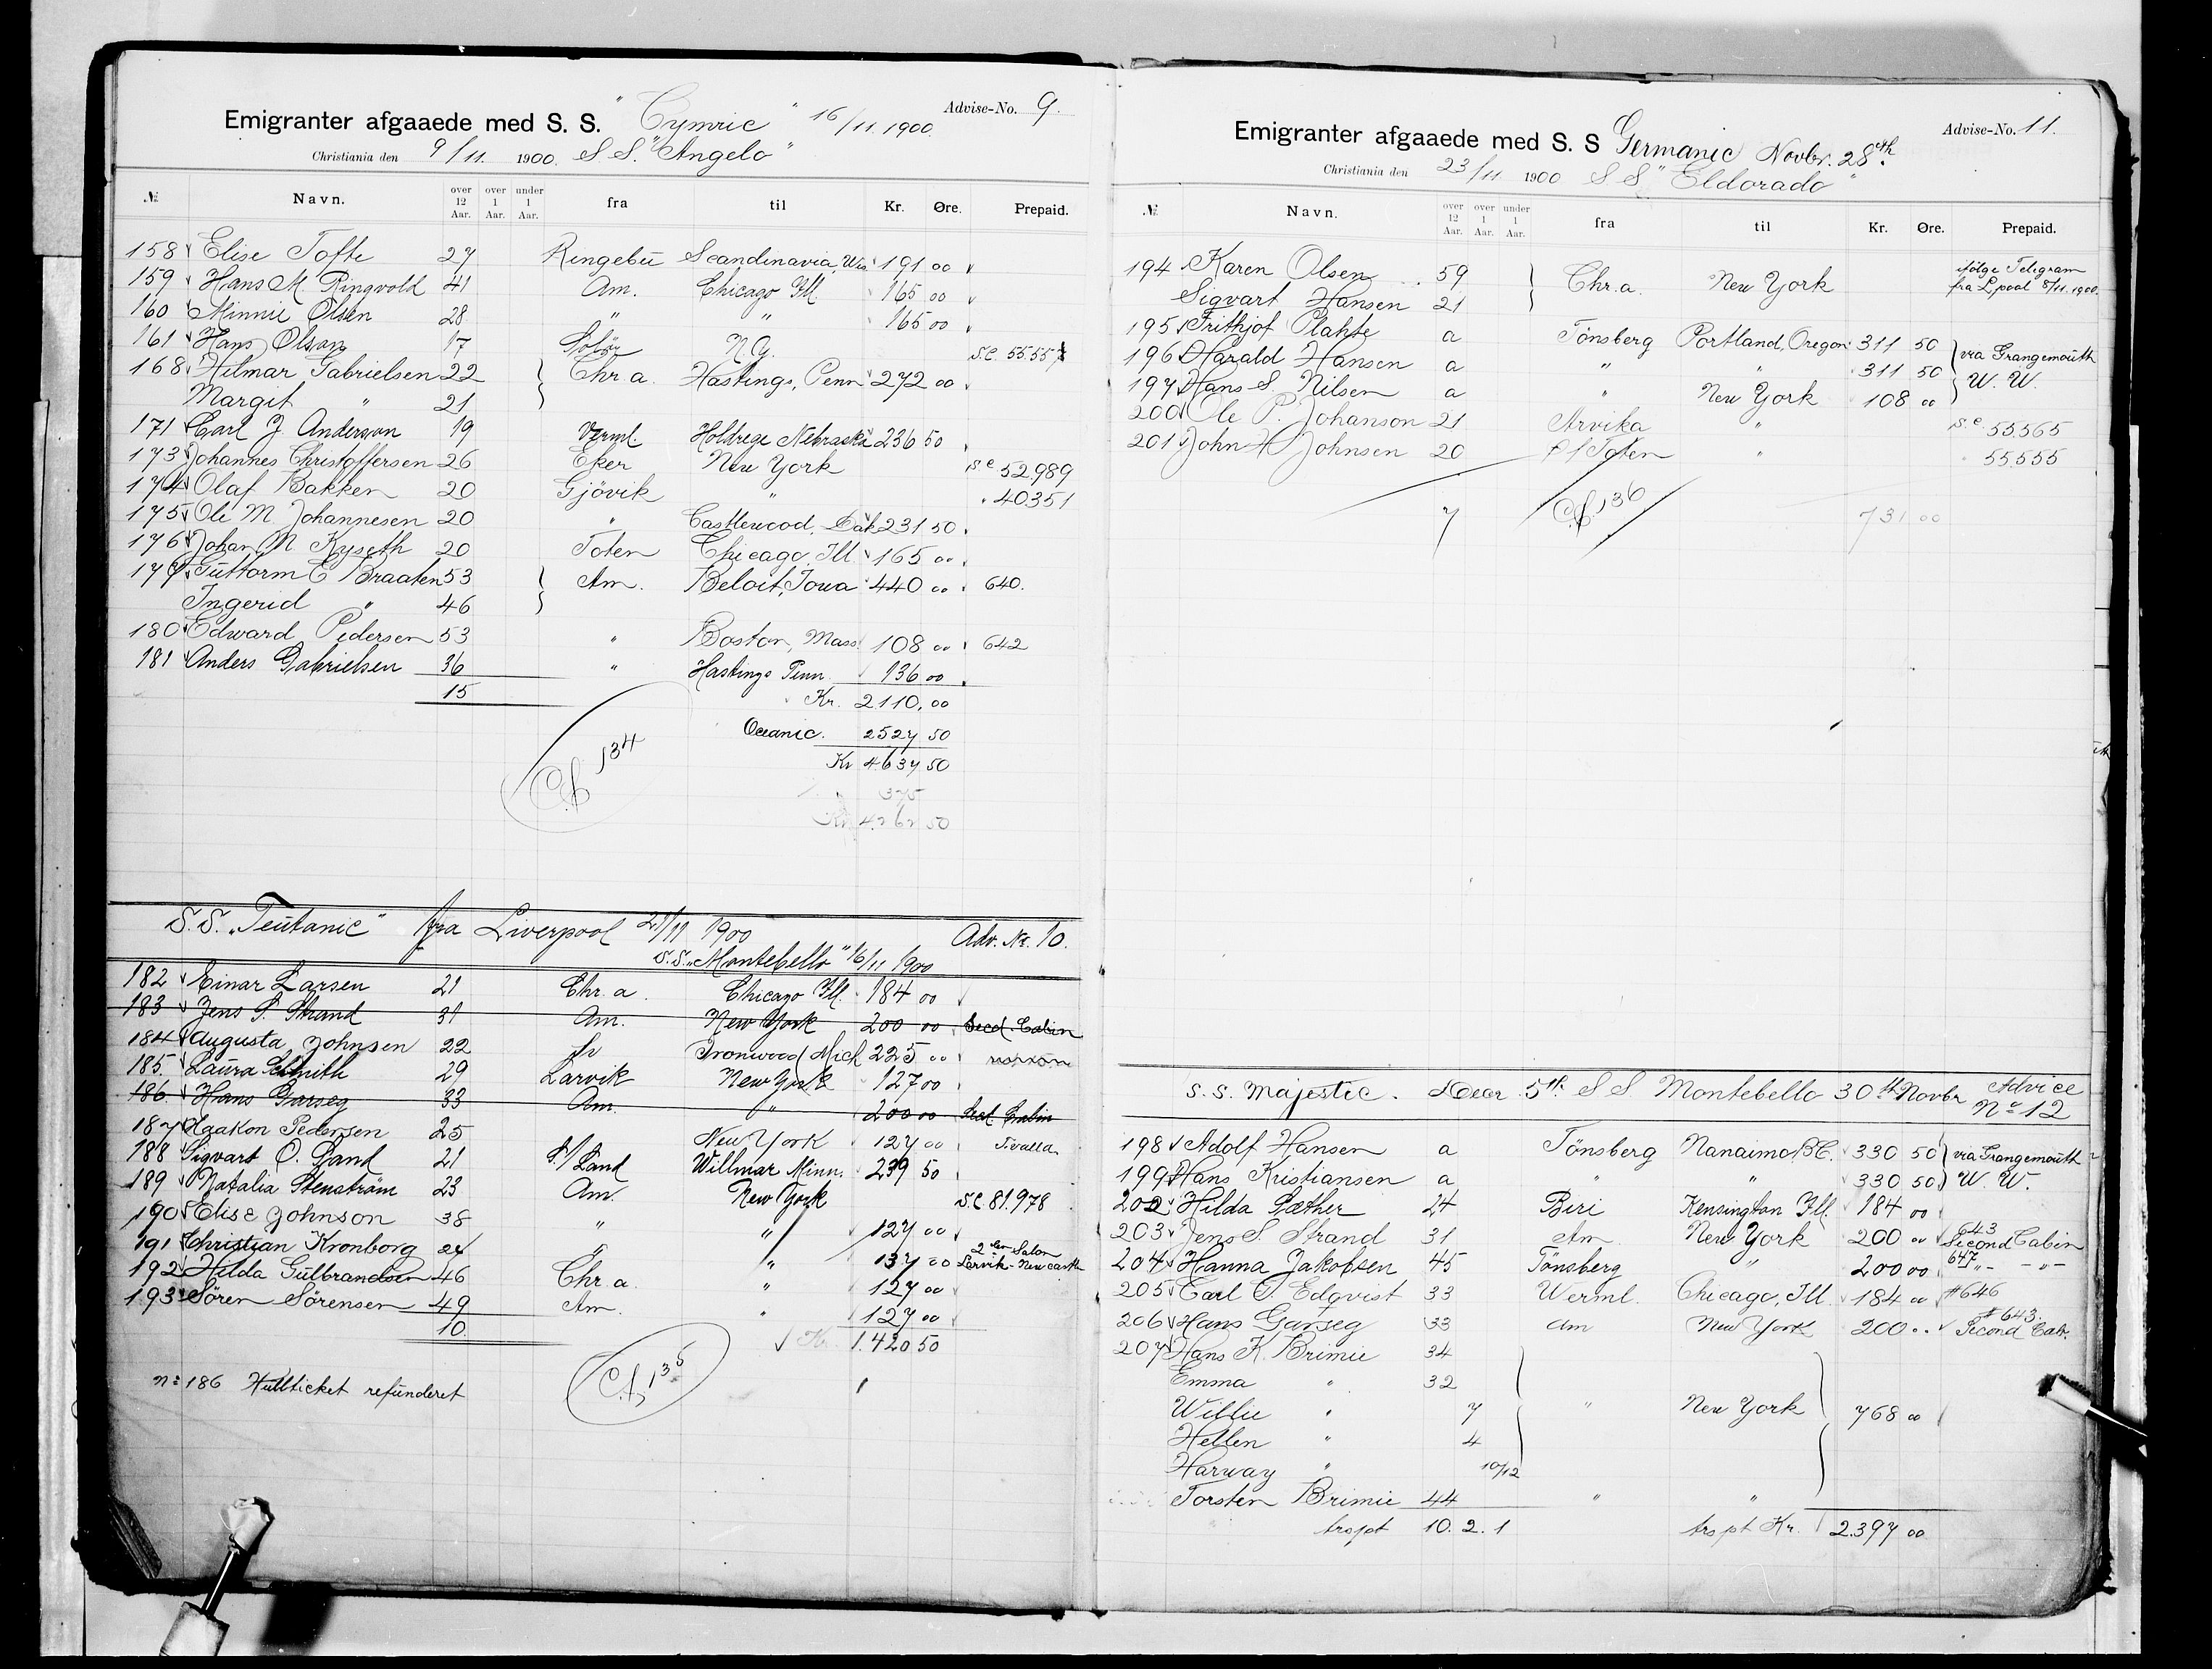 Emigranter afgaaede med S. S. "Cymric" 16/11 1900. Advise-No. 9.
Christiania den 9/11. 1900. S.S. "Angelo"
№ Navn. over 12 Aar. over 1 Aar. under 1 Aar. fra til Kr. Øre. Prepaid.
158 Elise Tofte 27 Ringebu Scandinavia, Wis 191 00
159 Hans M. Ringvold 41 Am. Chicago Ill. 165 00
160 Minnie Olsen 28 " " 165 00
161 Hans Olsen 17 Solør N.Y. S.C. 55.557
168 Hilmar Gabrielsen 22 Chr.a. Hastings, Penn 272 00
Margit " 21
171 Carl J. Anderson 19 Verml. Holdrege Nebraska 236 50
173 Johannes Christoffersen 26 Eker New York S.C. 52.989
174 Olaf Bakken 20 Gjövik " " 40351
175 Ole M. Johannesen 20 " Castlewood, Dak 231 50
176 Johan M. Kyseth 20 Toten Chicago, Ill. 165 00
177 Guttorm E Braaten 53 Am. Beloit, Iowa 440 00 640.
Ingerid " 46
180 Edward Pedersen 53 " Boston, Mass. 108 00 642
181 Anders Gabrielsen 36 " Hastings Penn. 136 00
15 Kr. 2110.00
Oceanic. 2527 50
134 Kr 4637 50
375
Kr 4262 50
S.S. "Teutanic" fra Liverpool 21/11 1900 Adv. Nr. 10.
S.S. "Montebello" 16/11 1900
182 Einar Larsen 21 Chr.a. Chicago Ill. 184 00
183 Jens S. Strand 31 Am. New York 200 00 Secd. Cabin
184 Augusta Johnsen 22 Ironwood Mich 225 00
185 Laura Schmith 29 Larvik New York 127 00
186 Hans Garseg 33 Am. " 200 00 Secd. Cabin
187 Haakon Pedersen 25 New York 127 00 Tivalla
188 Sigvart O. Rand 21 S./Land Willmar Minn. 239 50
189 Natalia Stenström 23 Am. New York S.C. 81.978
190 Elise Johnson 38 " " 127 00
191 Christian Kronborg 24 " " 137 00 2den Salon Larvik-Newcastle
192 Hilda Gulbrandsen 46 Chr.a. " 127 00
193 Sören Sörensen 49 Am. " 127 00
10. Kr. 1.420 50
135
No 186 Hullticket refunderet
Emigranter afgaaede med S. S Germanic Novbr. 28th. Advise-No. 11.
Christiania den 23/11 1900 S S "Eldorado"
№ Navn. over 12 Aar. over 1 Aar. under 1 Aar. fra til Kr. Øre. Prepaid.
194 Karen Olsen 59 Chr.a. New York ifölge Telegram fra L.pool 8/11.1900.
Sigvart Hansen 21
195 Frithjof Plahte a Tönsberg Portland, Oregon 311 50 via Grangemouth
196 Harald Hansen a " " 311 50 W. W.
197 Hans S. Nilsen a " New York 108 00
200 Ole P. Johanson 21 Arvika " S.C. 55.565
201 John H Johnsen 20 Toten " " 55.555
7 136 731 00
S.S. Majestic. Decr. 5th. S S Montebello 30th Novbr Advice No 12
198 Adolf Hansen a Tönsberg Nanaimo B.C. 330 50 via Grangemouth
199 Hans Kristiansen a " " 330 50 W. W.
202 Hilda Sæther 24 Biri Kensington Ill. 184 00
203 Jens S. Strand 31 Am New York 200 00 643 Second Cabin
204 Hanna Jakobsen 45 Tönsberg " 200 00 647 -"- -"-
205 Carl S. Edqvist 33 Werml. Chicago, Ill. 184 00 #646
206 Hans Garseg 33 Am New York 200 .. #643. Second Cab.
207 Hans K. Brimie 34
Emma " 32
Willie " 7 " New York 768 00
Hellen " 4
Harway " 10/12
Torsten Brimie 44 " "
trspt 10. 2. 1 trspt Kr. 2.397 00